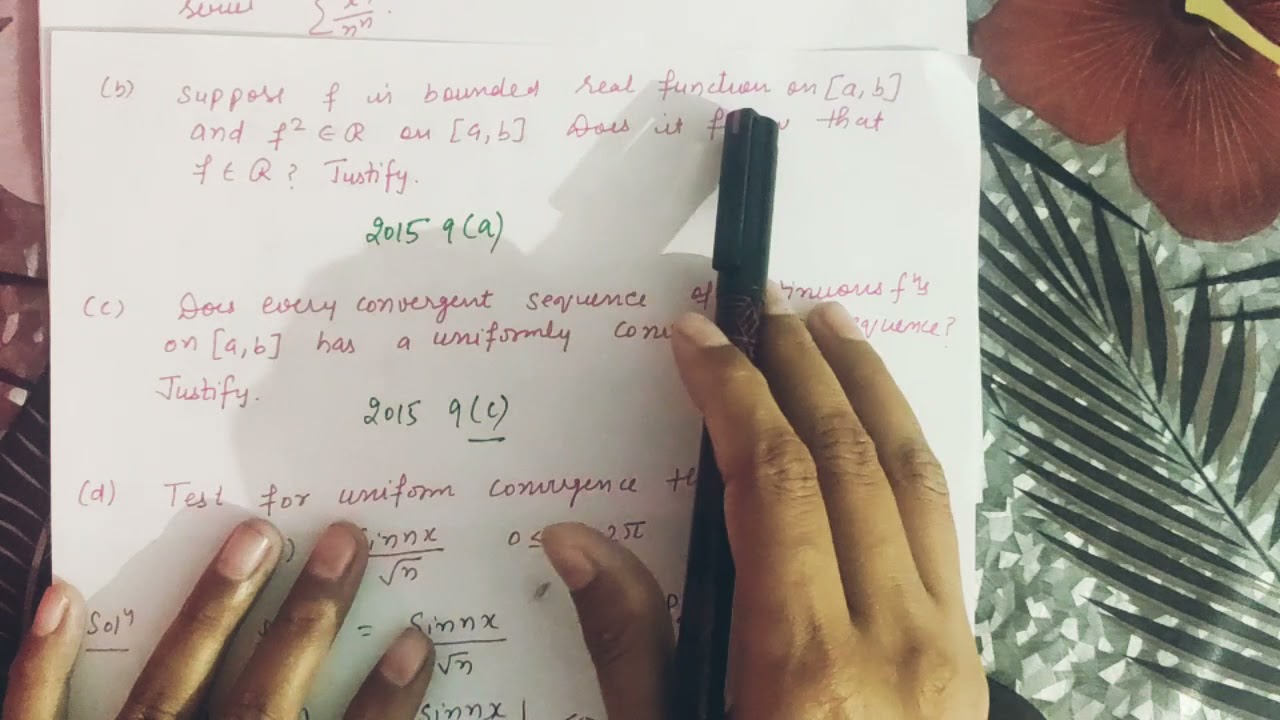 series Σ x / nⁿ .
(b) Suppose f is bounded real function on [a,b]
and f² ∈ R on [a,b] Does it that
f ∈ R ? Justify.
2015 9(a)
(c) Does every convergent sequence of fⁿs
on [a,b] has a uniformly
Justify.
2015 9(c)
(d) Test for uniform convergence
sin nx / √n 0 ≤ 2π
Solⁿ = sin nx / √n
sin nx